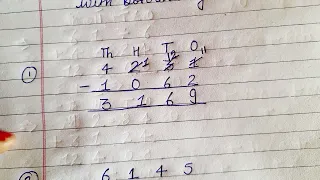 with
Th H T O
12 11
① 4 2 1 3 1
- 1 0 6 2
3 1 6 9
6 1 4 5